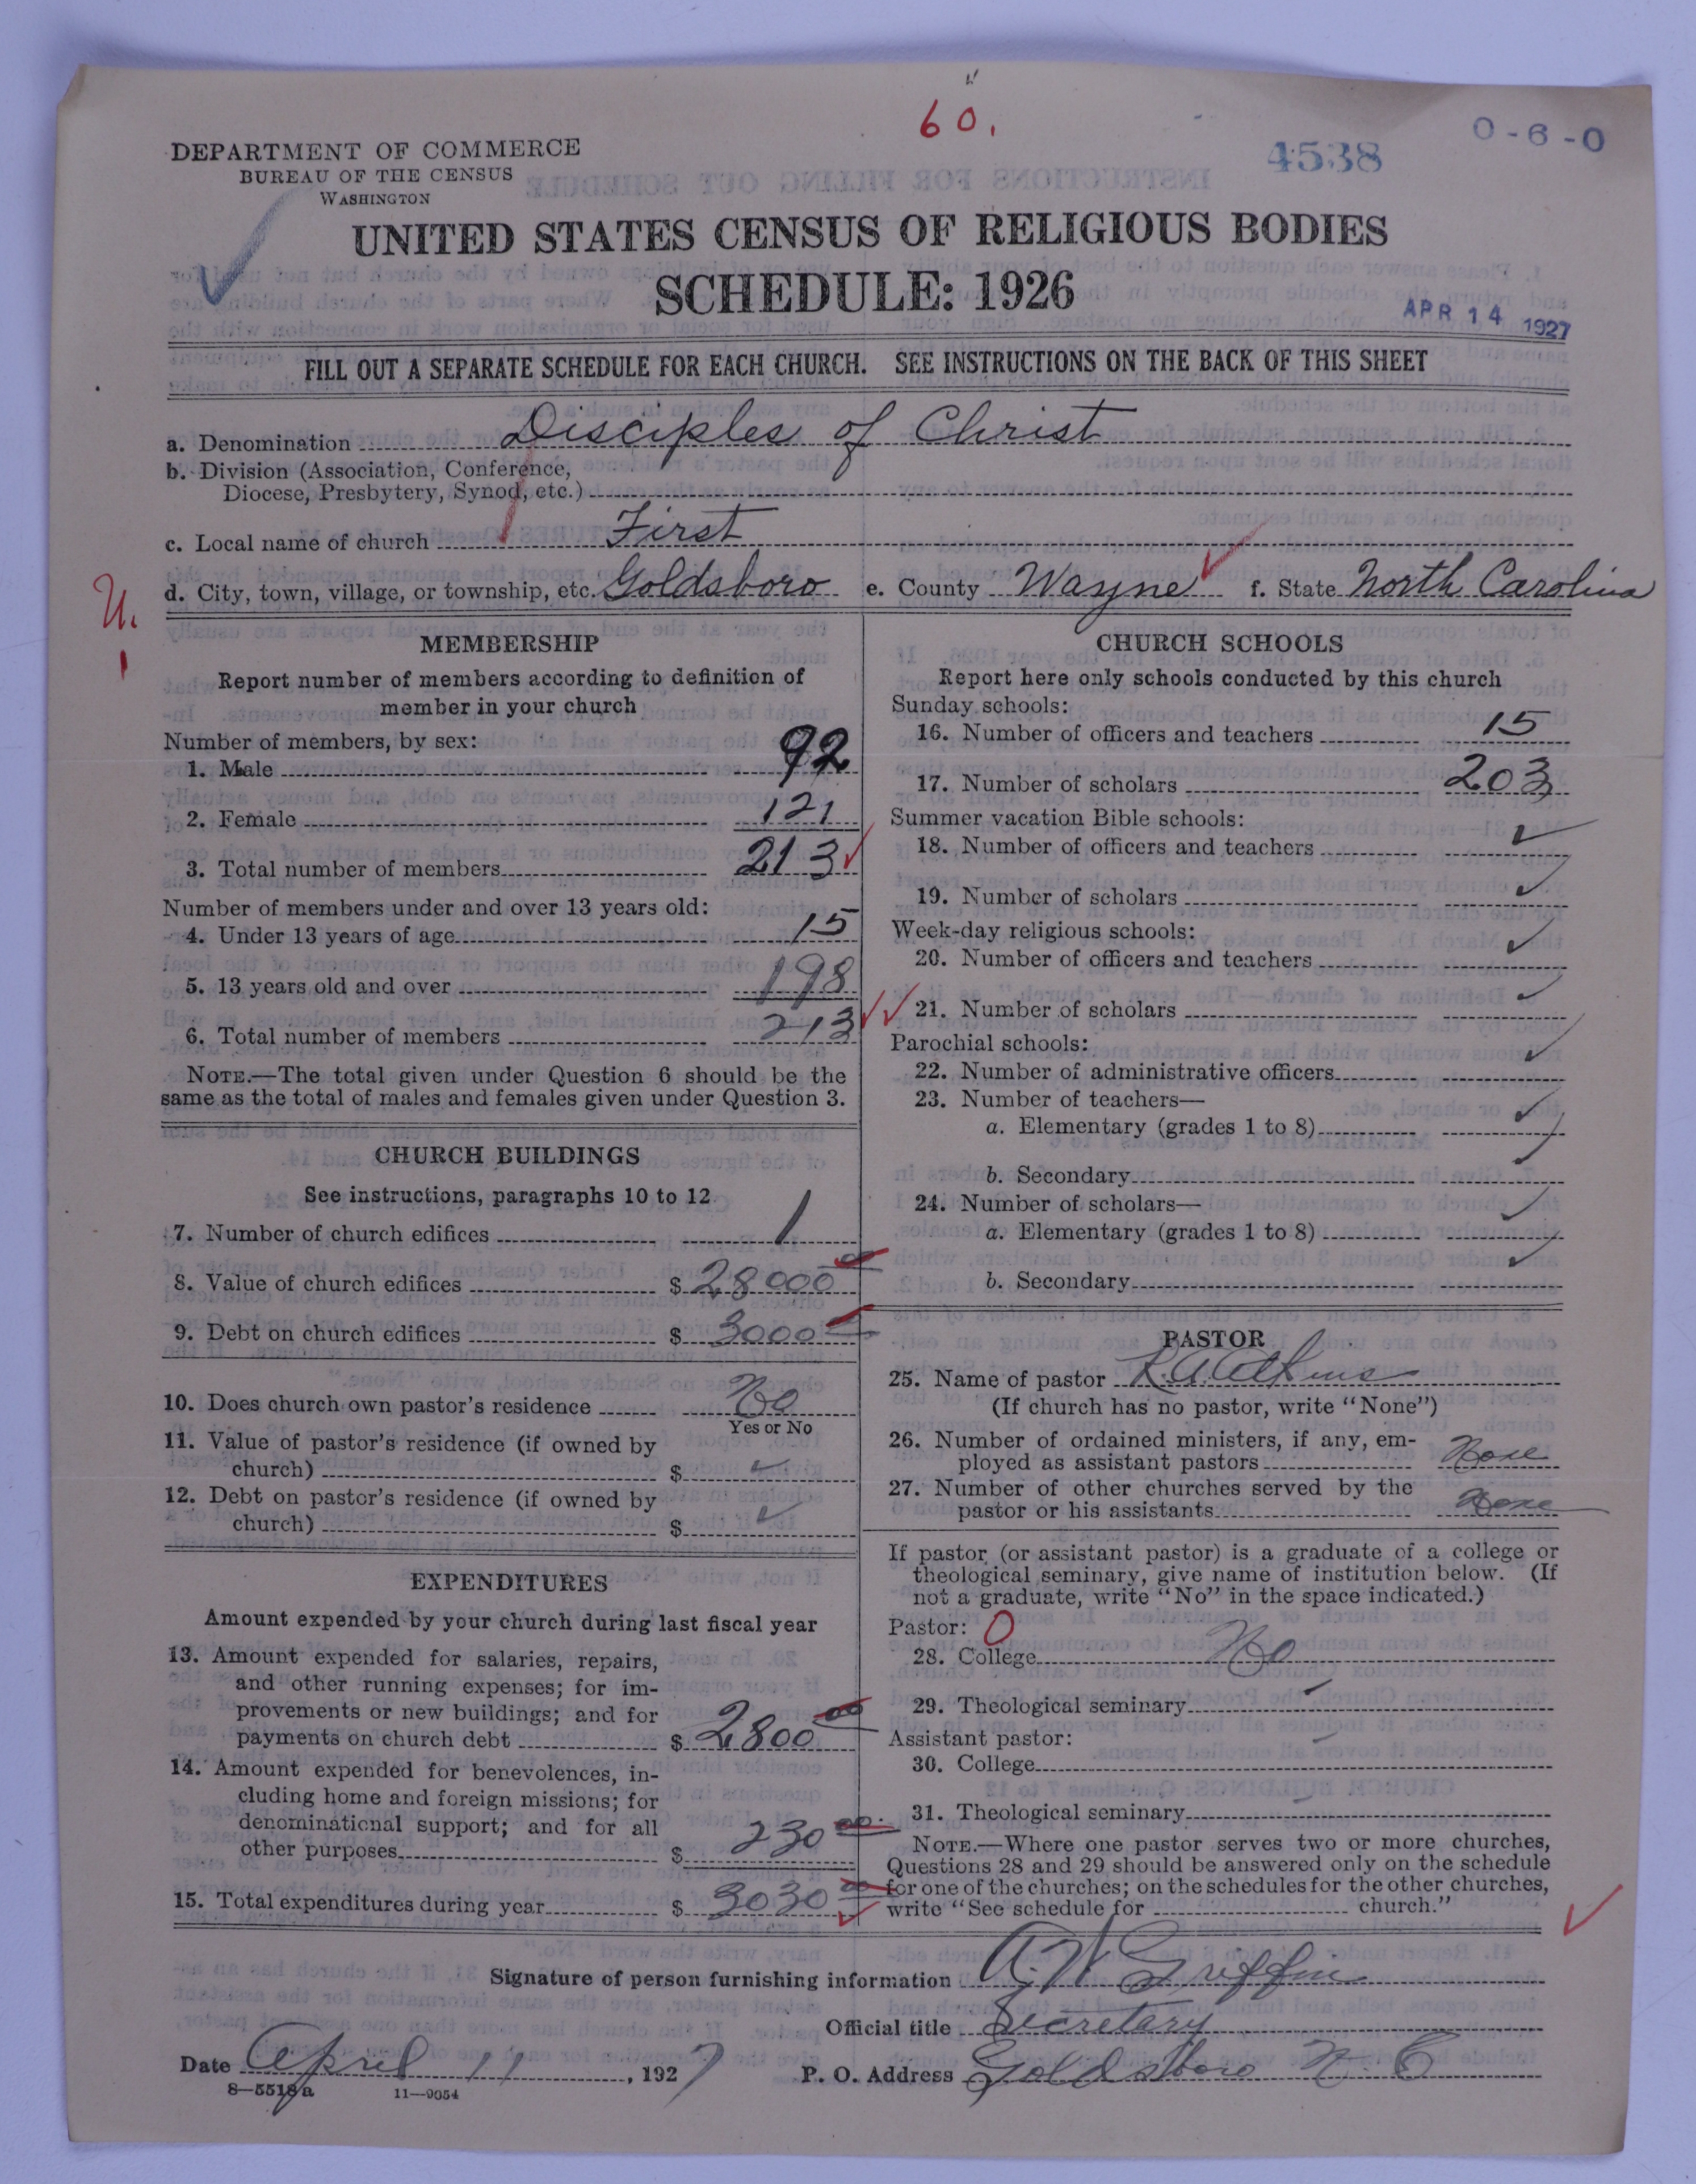 60.
4538
0-6-0
DEPARTMENT OF COMMERCE
BUREAU OF THE CENSUS
WASHINGTON
UNITED STATES CENSUS OF RELIGIOUS BODIES
SCHEDULE: 1926
APR 14 1927
FILL OUT A SEPARATE SCHEDULE FOR EACH CHURCH. SEE INSTRUCTIONS ON THE BACK OF THIS SHEET
a. Denomination Disciples of Christ
b. Division (Association, Conference,
Diocese, Presbytery, Synod, etc.)
c. Local name of church First
d. City, town, village, or township, etc. Goldsboro e. County Wayne f. State North Carolina
U.
1
MEMBERSHIP
Report number of members according to definition of
member in your church
Number of members, by sex:
1. Male 92
2. Female 121
3. Total number of members 213
Number of members under and over 13 years old:
4. Under 13 years of age 15
5. 13 years old and over 198
6. Total number of members 213
NOTE.—The total given under Question 6 should be the
same as the total of males and females given under Question 3.
CHURCH BUILDINGS
See instructions, paragraphs 10 to 12
7. Number of church edifices 1
8. Value of church edifices $ 28000 00
9. Debt on church edifices $ 3000
10. Does church own pastor's residence No
Yes or No
11. Value of pastor's residence (if owned by
church) $
12. Debt on pastor's residence (if owned by
church) $
EXPENDITURES
Amount expended by your church during last fiscal year
13. Amount expended for salaries, repairs,
and other running expenses; for im-
provements or new buildings; and for
payments on church debt $ 2800 00
14. Amount expended for benevolences, in-
cluding home and foreign missions; for
denominational support; and for all
other purposes $ 230 00
15. Total expenditures during year $ 3030 00
CHURCH SCHOOLS
Report here only schools conducted by this church
Sunday schools:
16. Number of officers and teachers 15
17. Number of scholars 203
Summer vacation Bible schools:
18. Number of officers and teachers
19. Number of scholars
Week-day religious schools:
20. Number of officers and teachers
21. Number of scholars
Parochial schools:
22. Number of administrative officers
23. Number of teachers—
a. Elementary (grades 1 to 8)
b. Secondary
24. Number of scholars—
a. Elementary (grades 1 to 8)
b. Secondary
PASTOR
25. Name of pastor
(If church has no pastor, write "None")
26. Number of ordained ministers, if any, em-
ployed as assistant pastors None
27. Number of other churches served by the
pastor or his assistants None
If pastor (or assistant pastor) is a graduate of a college or
theological seminary, give name of institution below. (If
not a graduate, write "No" in the space indicated.)
Pastor: 0
28. College No
29. Theological seminary
Assistant pastor:
30. College
31. Theological seminary
NOTE.—Where one pastor serves two or more churches,
Questions 28 and 29 should be answered only on the schedule
for one of the churches; on the schedules for the other churches,
write "See schedule for church."
Signature of person furnishing information A. W. Griffin
Official title Secretary
Date April 11, 1927 P. O. Address Goldsboro N. C
8—5518a 11—9054